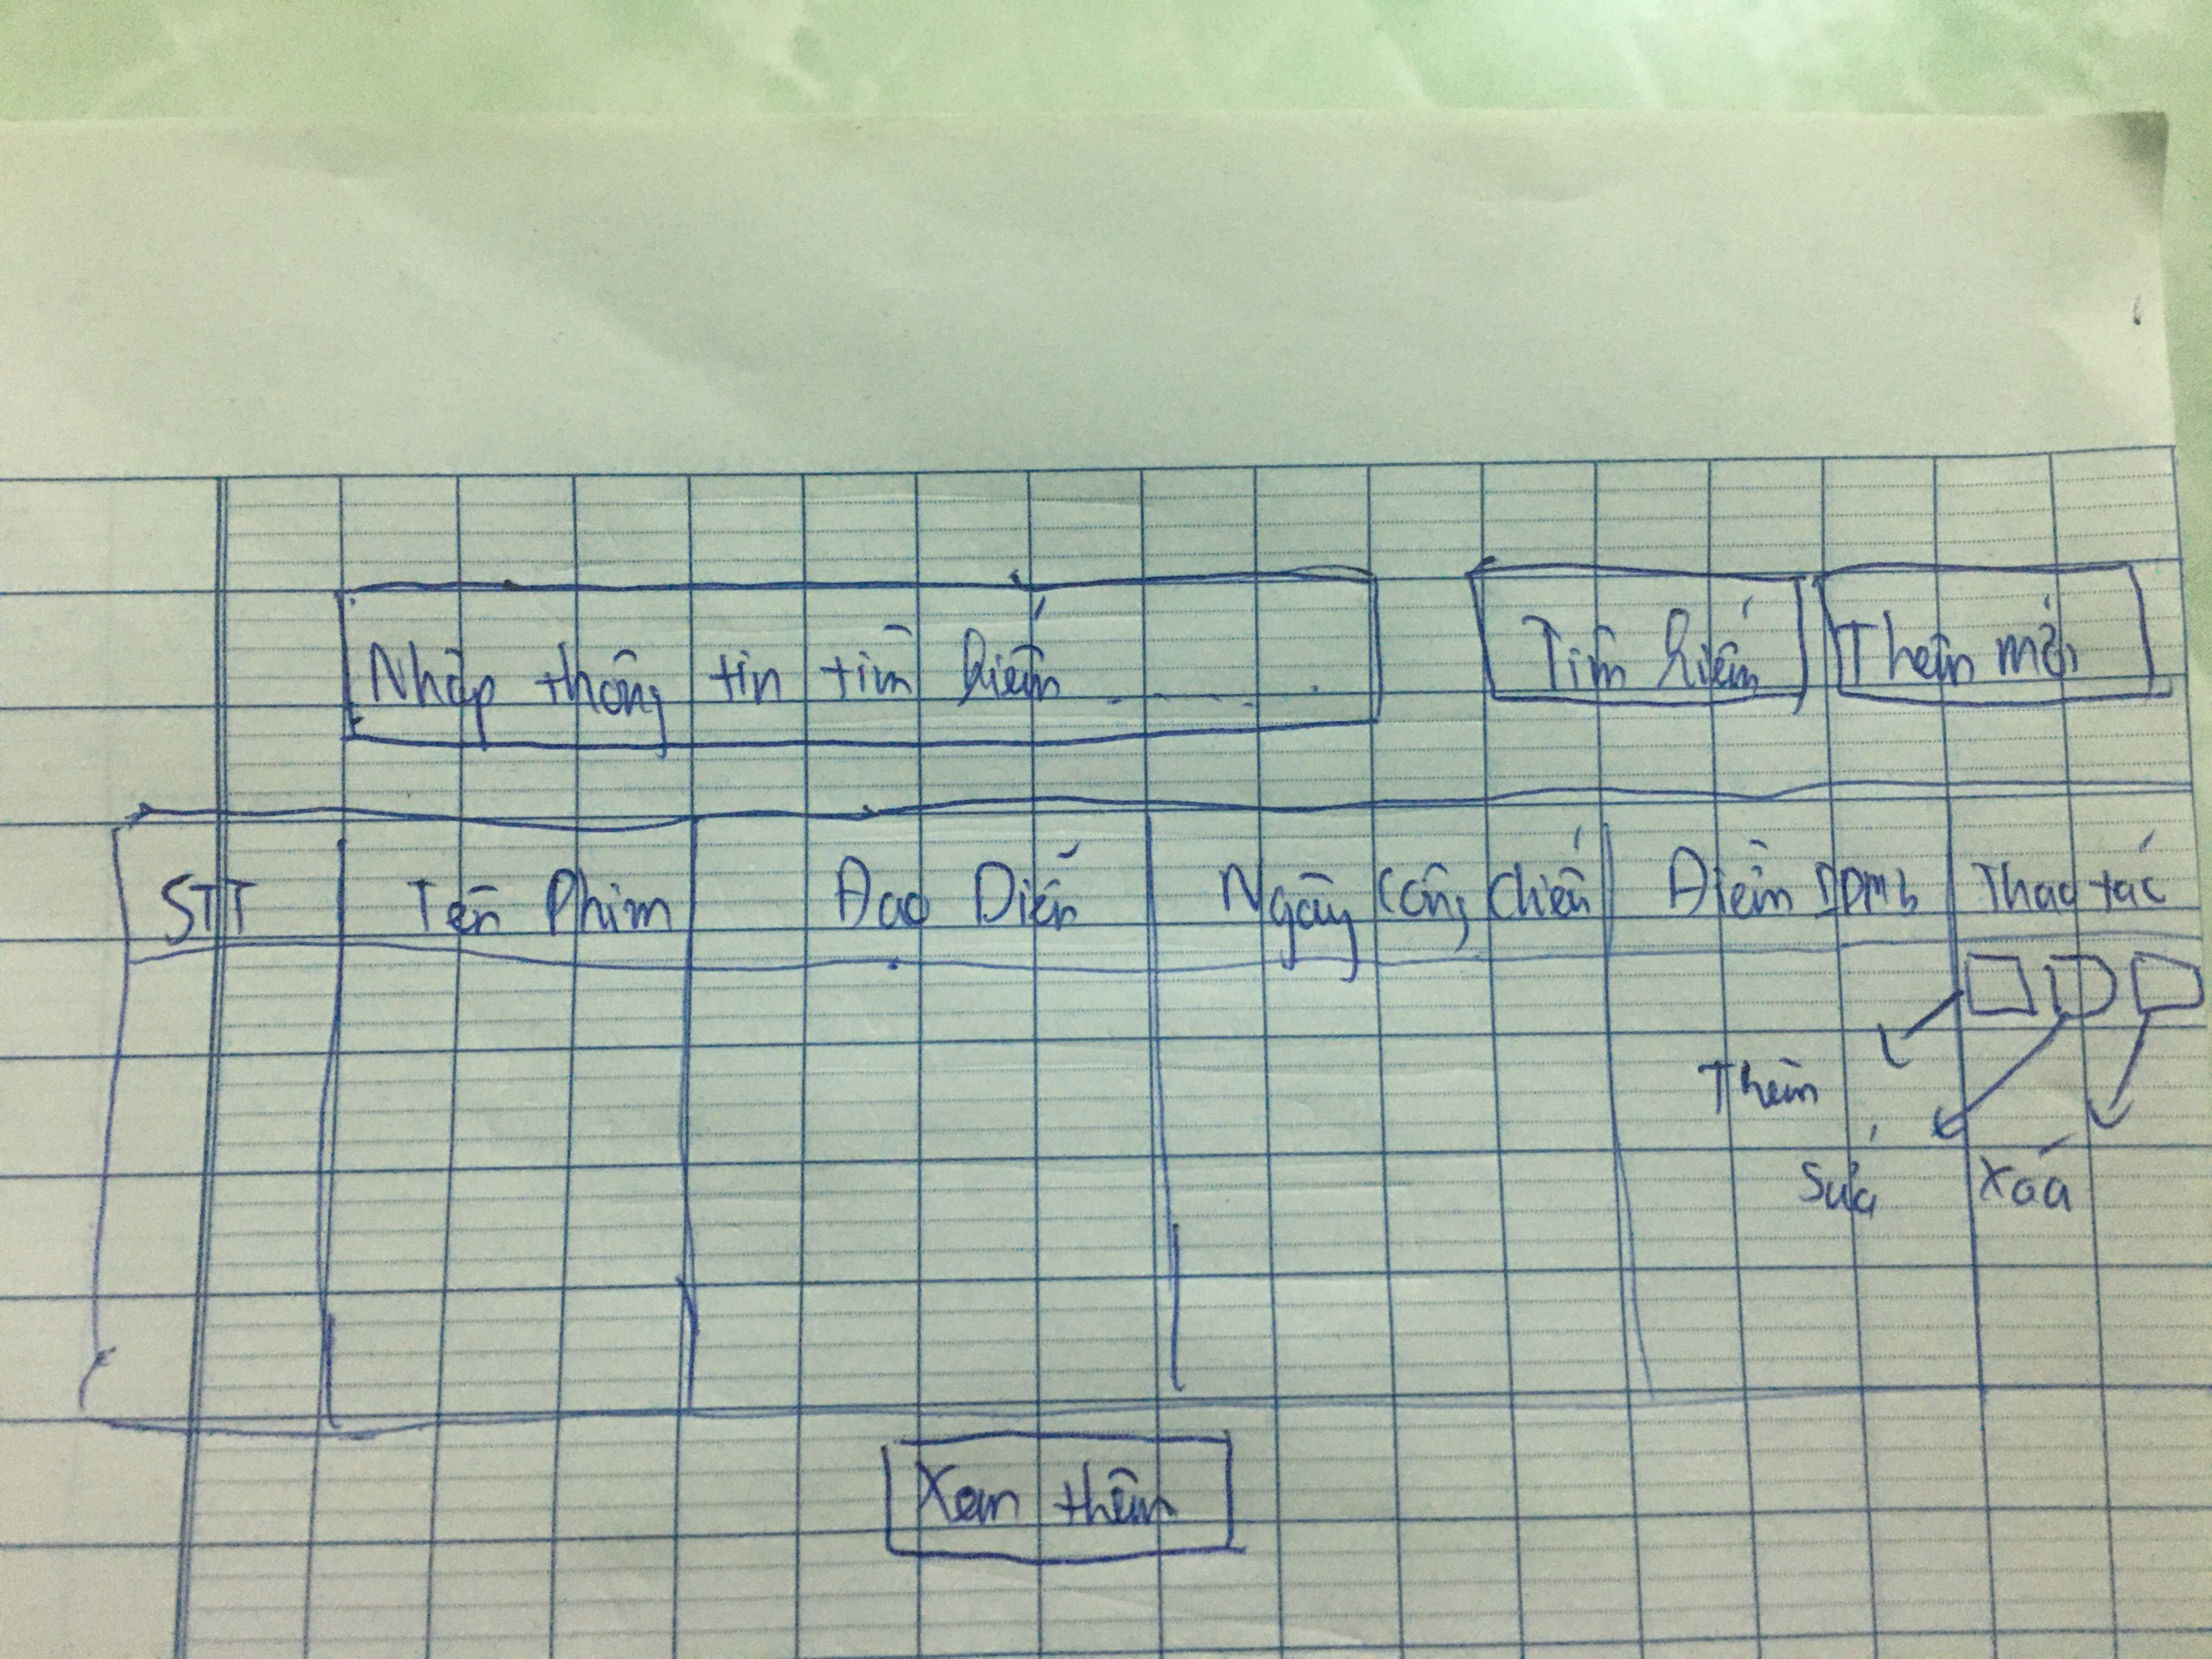 Nhập thông tin tìm kiếm . . . . .
Tìm kiếm
Thêm mới
STT Tên Phim Đạo Diễn Ngày Công Chiếu Điểm IDMb Thao tác
Thêm
Sửa Xoá
Xem thêm